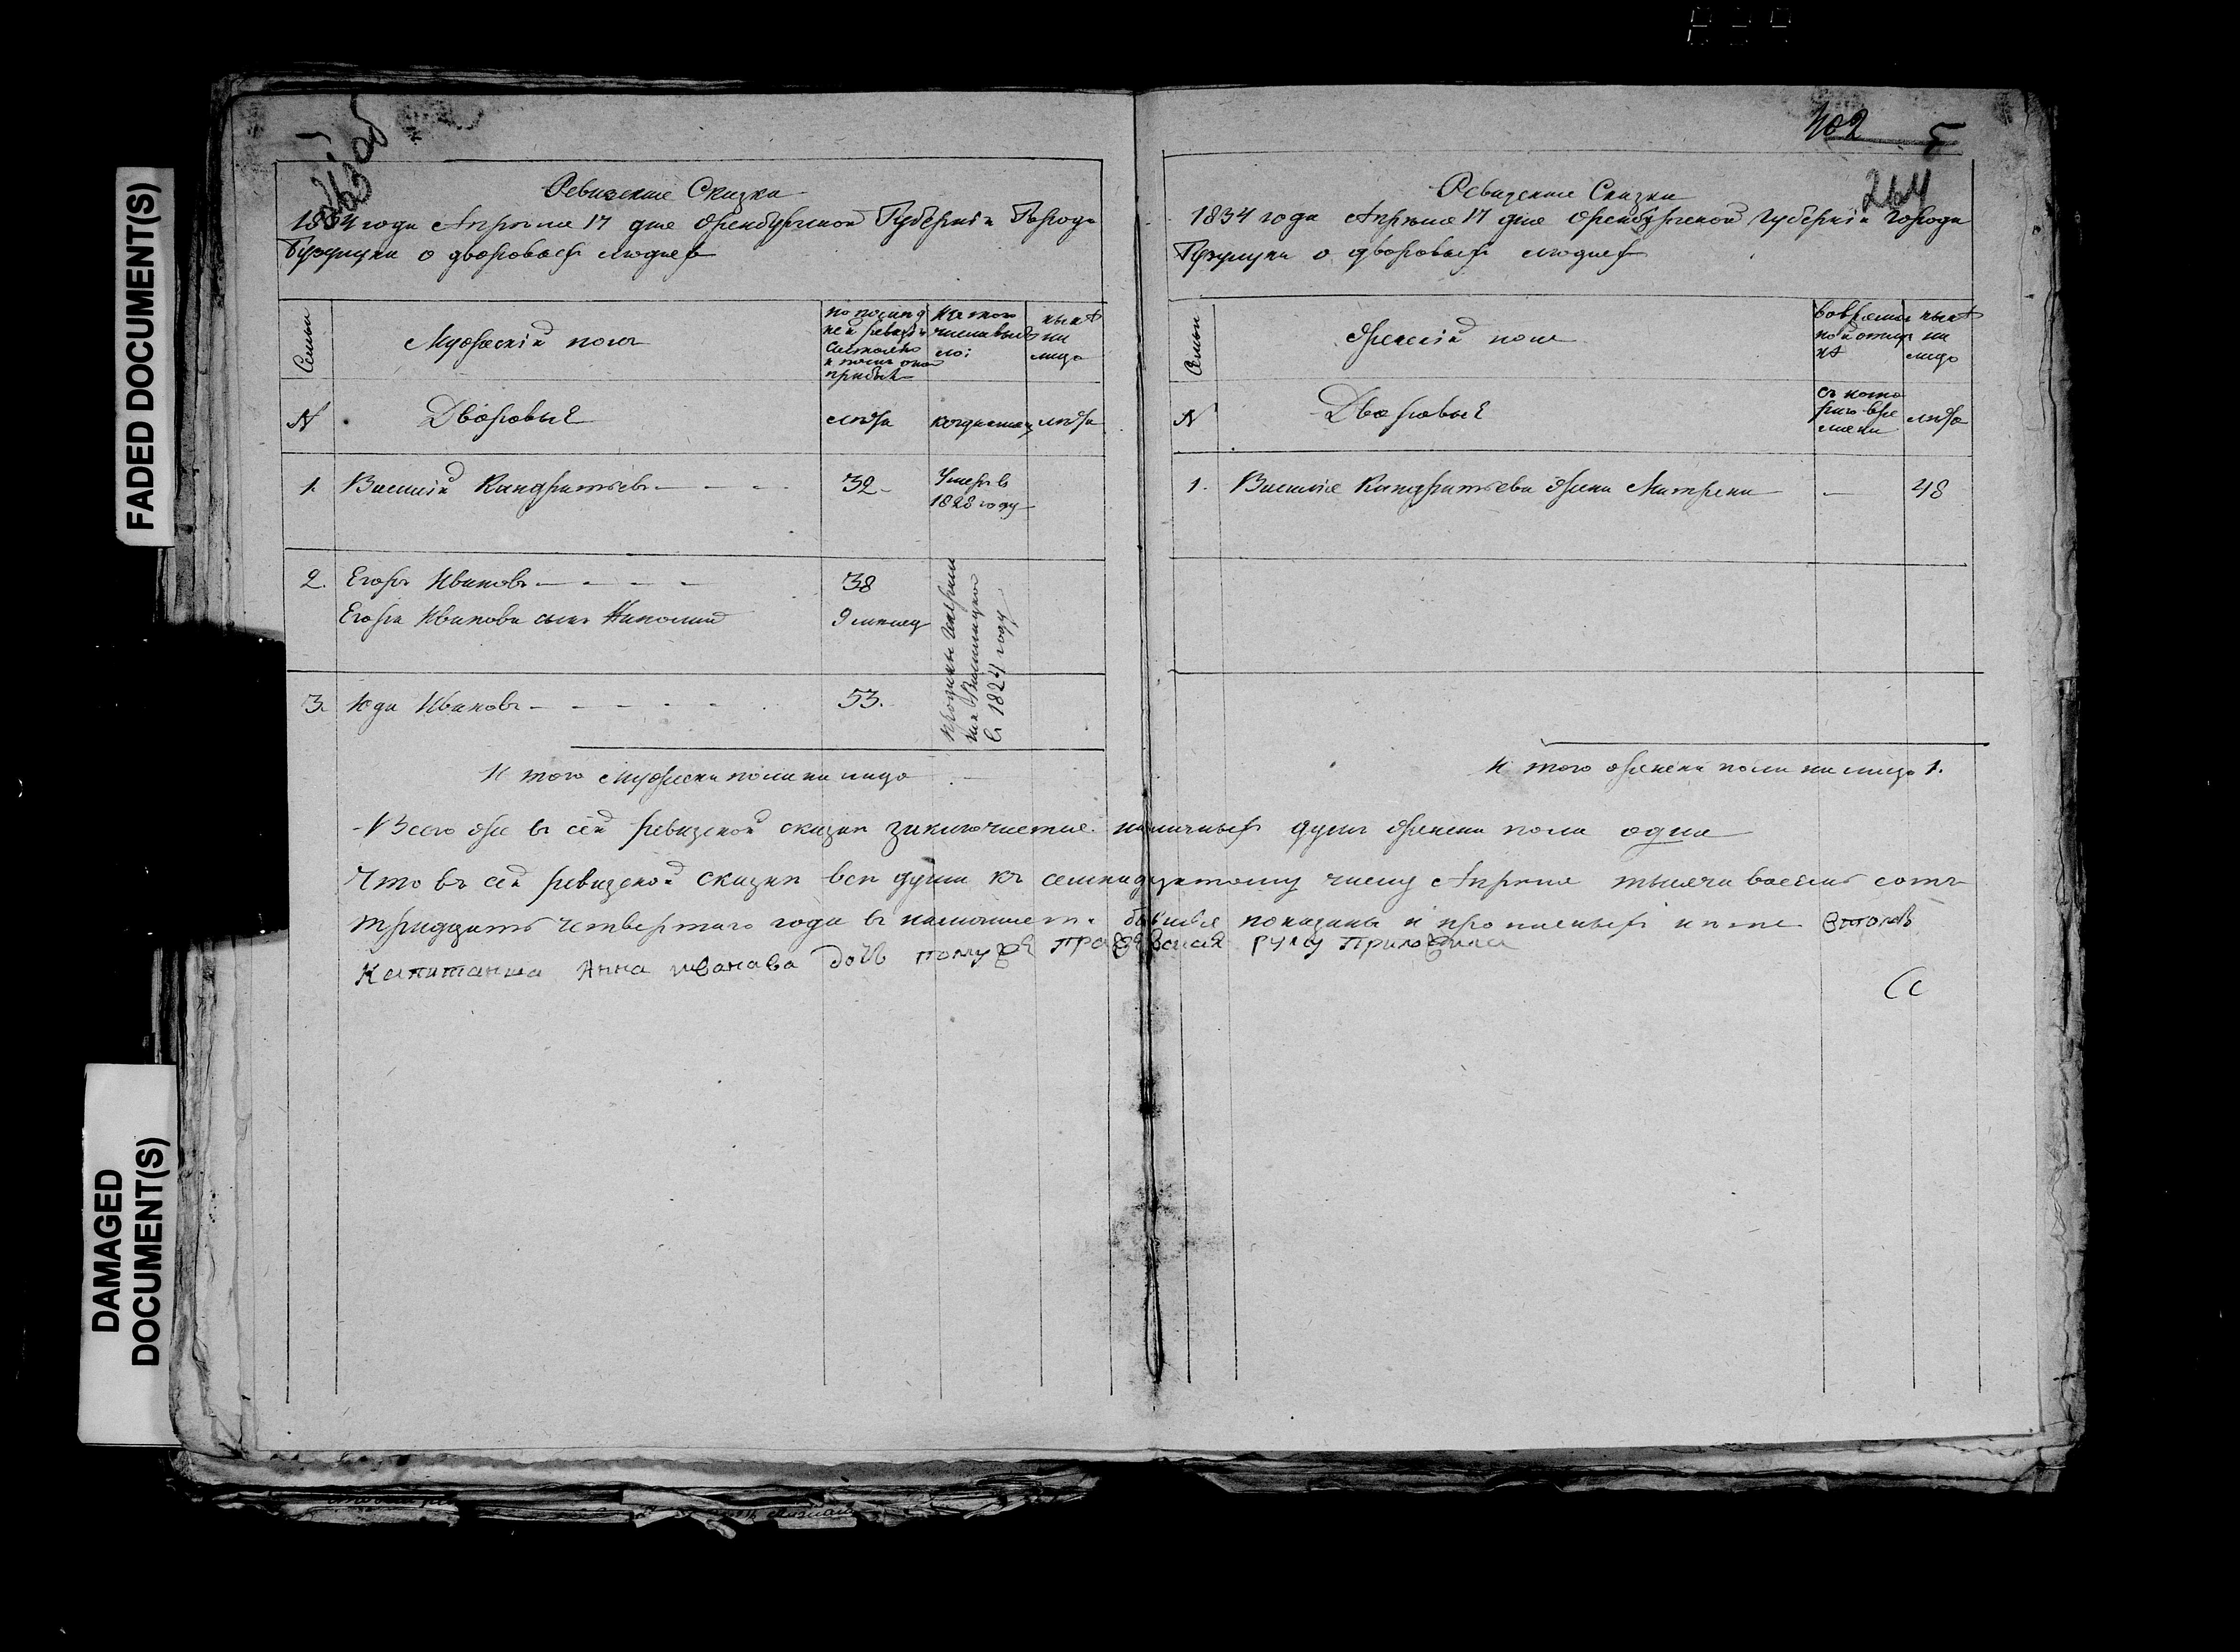 FADED DOCUMENT(S)
DAMAGED
DOCUMENT(S)
Ревизские Сказки
1834 года Апреля 17 дня Оренбургской Губернiи Города
Бузулука о дворовых людях
Семьи
Мужескiй полъ
ныне
на
лицо
№
Дворовые
лета
лета
1. Василiй Кандратьевъ
32
Умеръ в
1828 году
2. Егоръ Ивановъ
38
Егора Иванова сынъ Николай
9 месяц
3. Юда Ивановъ
53.
в 1824 году
И того мужеска пола на лицо
402
264
Ревизские Сказки
1834 года Апреля 17 дня Оренбургской Губернiи города
Бузулука о дворовых людях
Семьи
Женскiй полъ
ныне
на
лицо
№
Дворовые
съ кото
раго вре
мени
лета
1. Василья Кандратьева жена Матрена
48
И того женска пола на лицо 1.
Всего же въ сей ревизской сказке заключается наличных душъ женска пола одна
Что въ сей ревизской сказке все души къ семнадцатому числу Апреля тысяча восемь сотъ
тридцать четвертаго года в наличности бывшiя показаны и прописных нетъ втомъ
Капитанша Анна иванава дочь помуже руку Приложила